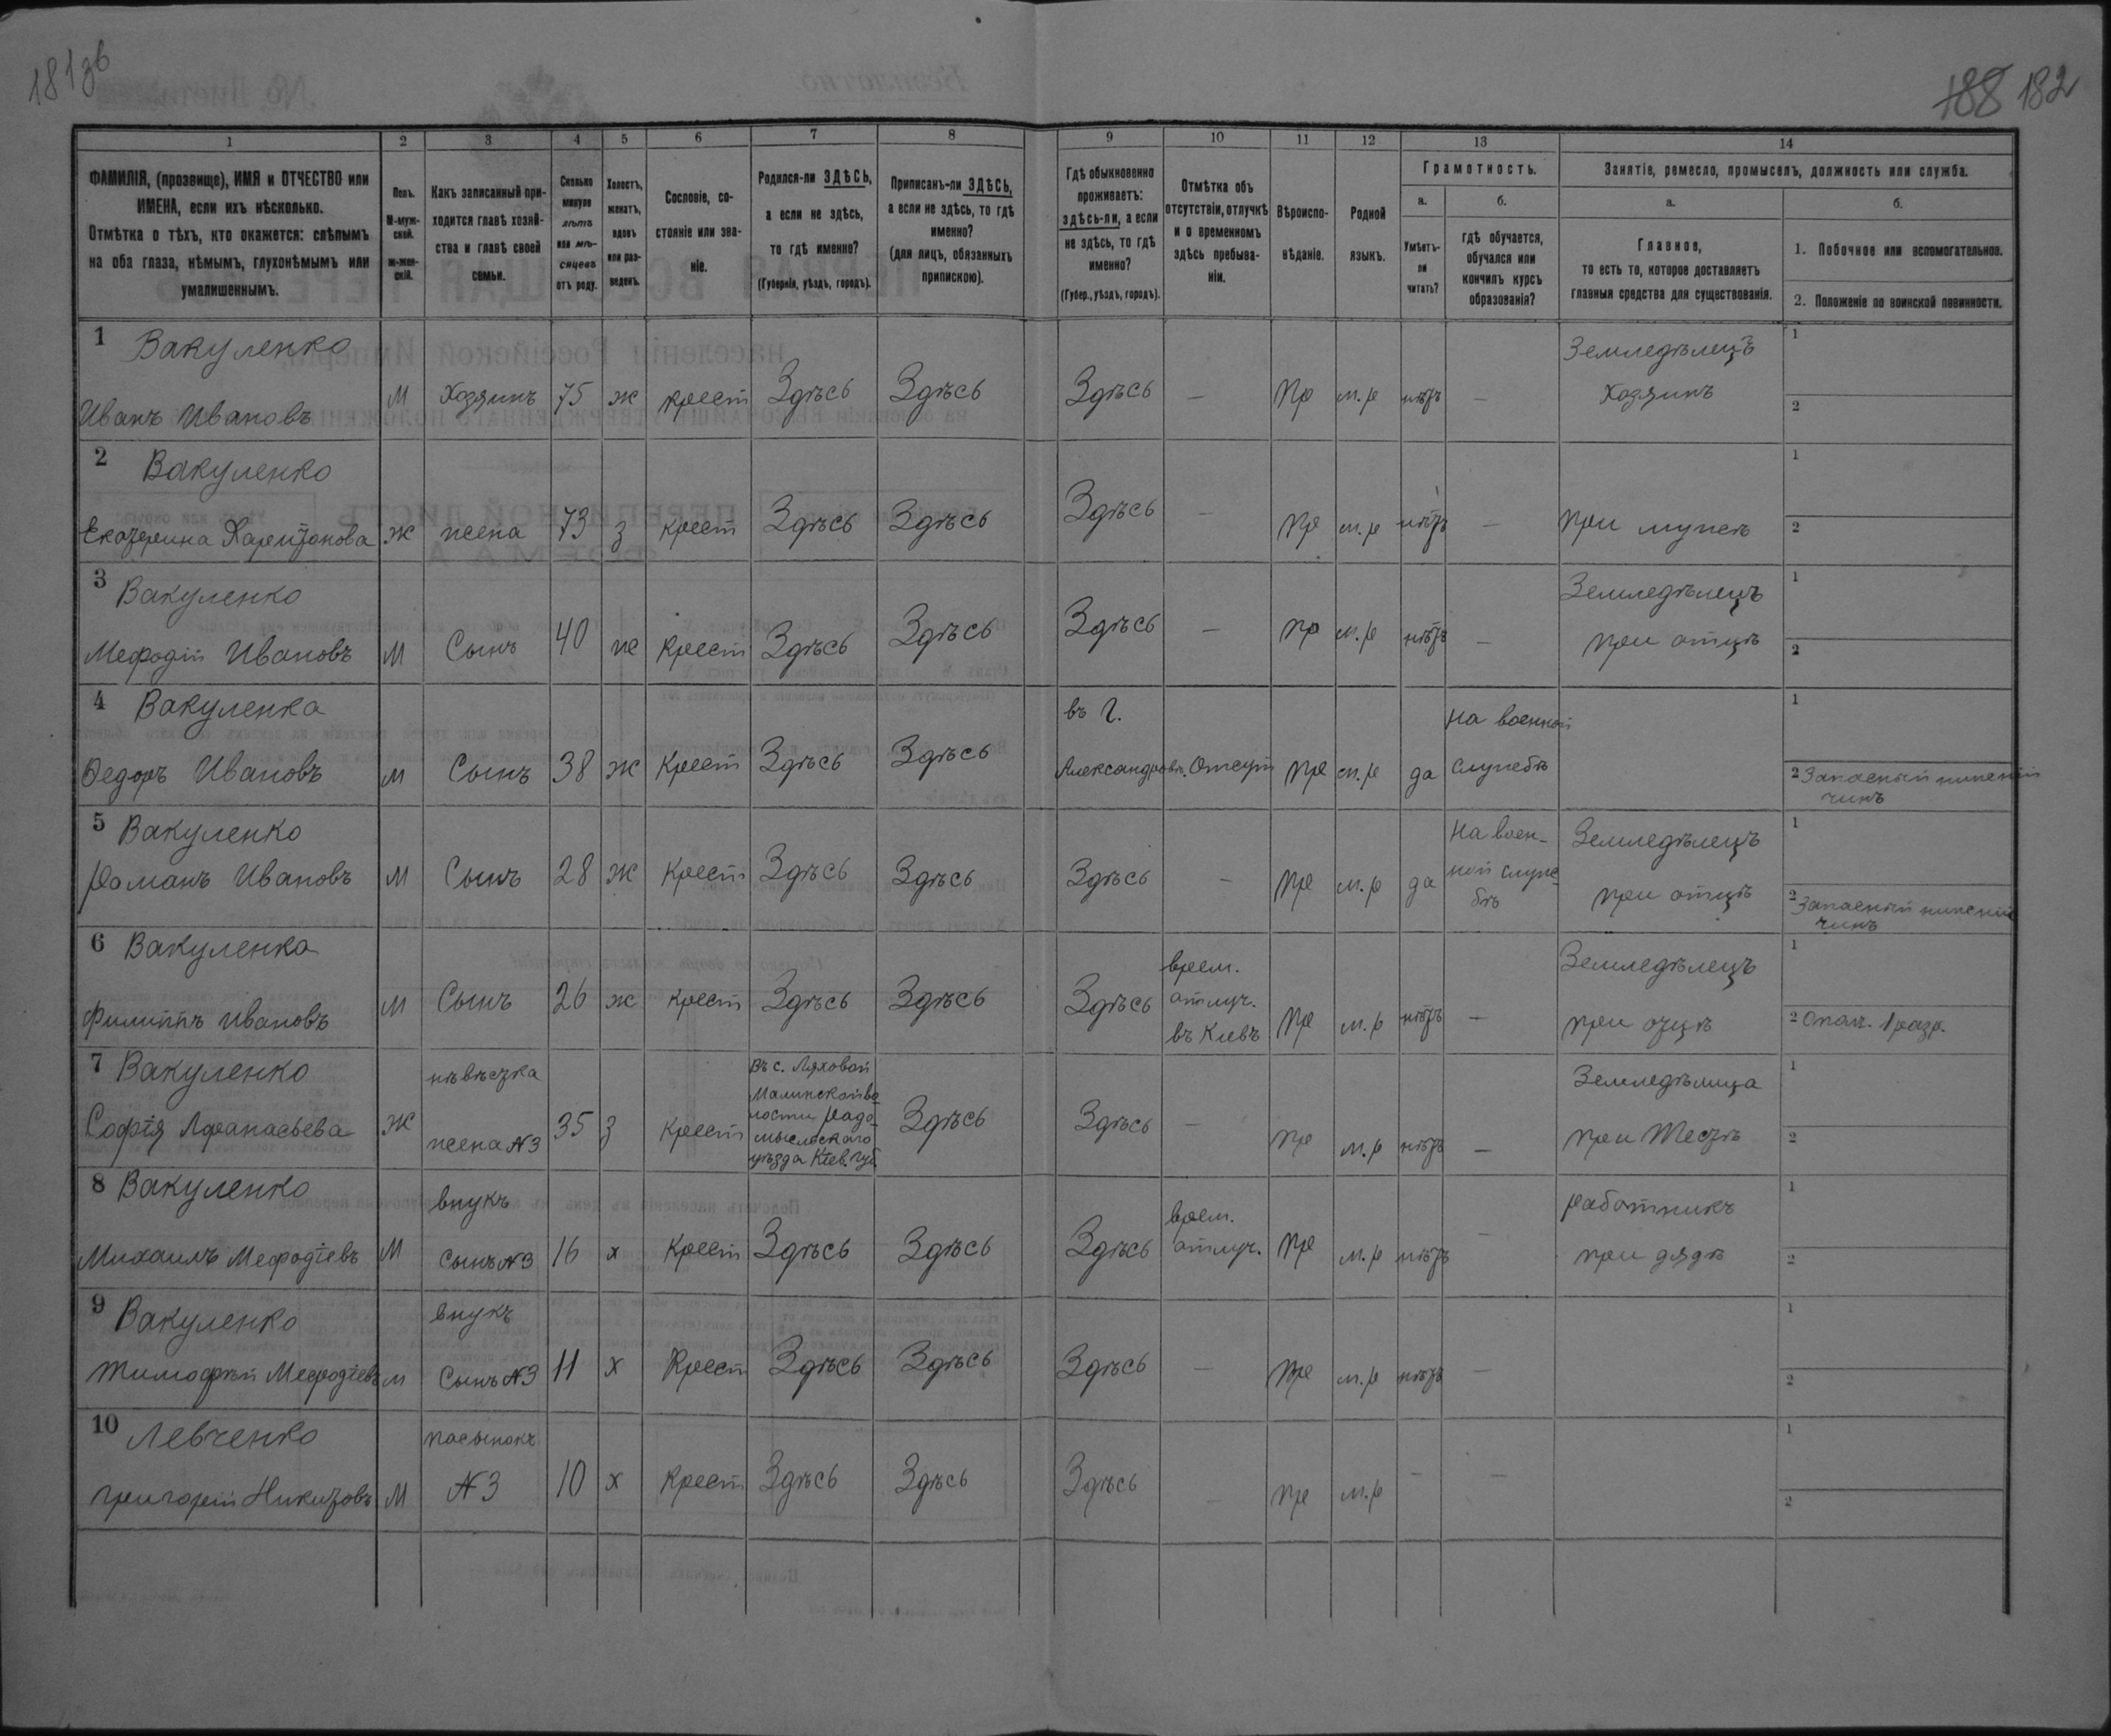 181 зв
188 182
1 2 3 4 5 6 7 8 9 10 11 12 13 14
ФАМИЛІЯ, (прозвище), ИМЯ и ОТЧЕСТВО или ИМЕНА, если ихъ нѣсколько.
Отмѣтка о тѣхъ, кто окажется: слѣпымъ на оба глаза, нѣмымъ, глухонѣмымъ или умалишеннымъ.
Полъ. М-муж-ской. ж-жен-скій.
Какъ записанный при-ходится главѣ хозяй-ства и главѣ своей семьи.
Сколько минуло лѣтъ или мѣ-сяцевъ отъ роду.
Холостъ, женатъ, вдовъ или раз-веденъ.
Сословіе, со-стояніе или зва-ніе.
Родился-ли ЗДѢСЬ, а если не здѣсь, то гдѣ именно? (Губернія, уѣздъ, городъ).
Приписанъ-ли ЗДѢСЬ, а если не здѣсь, то гдѣ именно? (для лицъ, обязанныхъ припискою).
Гдѣ обыкновенно проживаетъ: здѣсь-ли, а если не здѣсь, то гдѣ именно? (Губер., уѣздъ, городъ).
Отмѣтка объ отсутствіи, отлучкѣ и о временномъ здѣсь пребыва-ніи.
Вѣроиспо-вѣданіе.
Родной языкъ.
Грамотность.
а. Умѣетъ-ли читать?
б. гдѣ обучается, обучался или кончилъ курсъ образованія?
Занятіе, ремесло, промыселъ, должность или служба.
а. Главное, то есть то, которое доставляетъ главныя средства для существованія.
б.
1. Побочное или вспомогательное.
2. Положеніе по воинской повинности.
1 Вакуленко Земледѣлецъ 1
Иванъ Ивановъ М Хозяинъ 75 ж крест Здѣсь Здѣсь Здѣсь — пр м.р нѣтъ — Хозяинъ 2
2 Вакуленко 1
Екатерина Харитонова ж жена 73 з крест Здѣсь Здѣсь Здѣсь — пр м.р нѣтъ — при мужѣ 2
3 Вакуленко Земледѣлецъ 1
Мефодій Ивановъ М Сынъ 40 ж Крест Здѣсь Здѣсь Здѣсь — пр м.р нѣтъ — при отцѣ 2
4 Вакуленка въ г. На военной 1
Ѳедоръ Ивановъ м Сынъ 38 ж Крест Здѣсь Здѣсь Александровъ. Отсут пр м.р да службѣ 2 Запасный нижній
чинъ
5 Вакуленко На воен- Земледѣлецъ 1
Романъ Ивановъ М Сынъ 28 ж Крест Здѣсь Здѣсь Здѣсь — пр м.р да ной служ- при отцѣ 2 Запасный нижній
бѣ чинъ
6 Вакуленка врем. Земледѣлецъ 1
Филиппъ Ивановъ М Сынъ 26 ж крест Здѣсь Здѣсь Здѣсь отлуч. пр м.р нѣтъ — при отцѣ 2 Опол. 1 разр.
въ Кіевъ
7 Вакуленко невѣстка Въ с. Ляховой Земледѣлица 1
Малинской во-
Софія Афанасьева ж жена №3 35 з крест лости Радо- Здѣсь Здѣсь — пр м.р нѣтъ — при тестѣ 2
мысльскаго
уѣзда Кіев. губ.
8 Вакуленко внукъ врем. работникъ 1
Михаилъ Мефодіевъ М Сынъ №3 16 х Крест Здѣсь Здѣсь Здѣсь отлуч. пр м.р нѣтъ — при дядѣ 2
9 Вакуленко внукъ 1
Тимофѣй Мефодіевъ м Сынъ №3 11 х Крест Здѣсь Здѣсь Здѣсь — пр м.р нѣтъ — 2
10 Левченко пасынокъ 1
Григорій Никитовъ М №3 10 х Крест Здѣсь Здѣсь Здѣсь — пр м.р — — 2